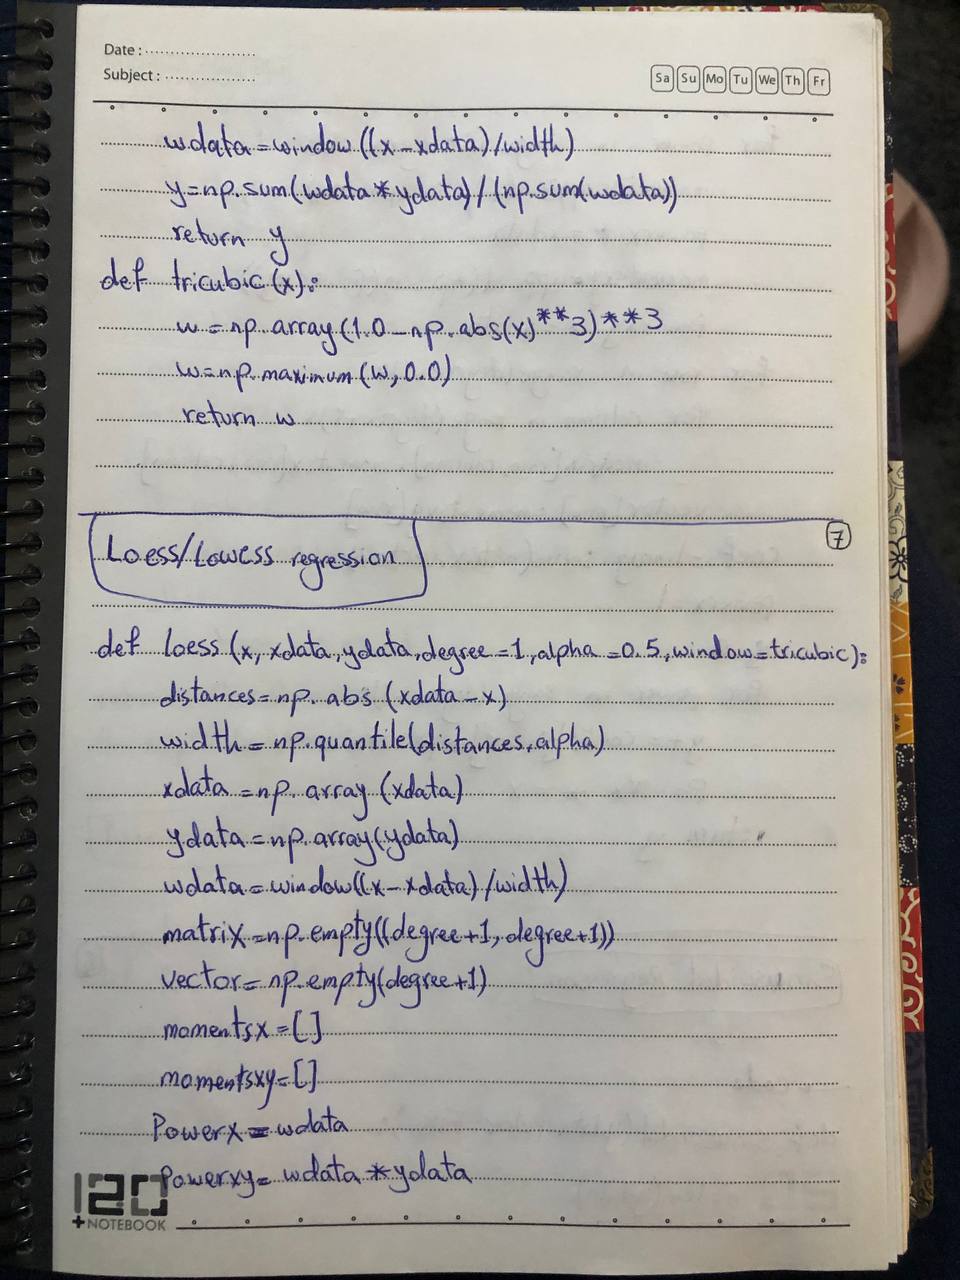 Date :
Subject :
Sa Su Mo Tu We Th Fr
wdata=window((x-xdata)/width)
y=np.sum(wdata*ydata)/(np.sum(wdata))
return y
def tricubic(x):
w=np.array(1.0-np.abs(x)**3)**3
w=np.maximum(w,0.0)
return w
7
Loess/Lowess regression
def Loess(x, xdata,ydata,degree=1,alpha=0.5,window=tricubic):
distances=np.abs(xdata-x)
width=np.quantile(distances,alpha)
xdata=np.array(xdata)
ydata=np.array(ydata)
wdata=window((x-xdata)/width)
matrix=np.empty((degree+1,degree+1))
vector=np.empty(degree+1)
momentsx=[]
momentsxy=[]
Powerx=wdata
Powerxy=wdata*ydata
120
+NOTEBOOK